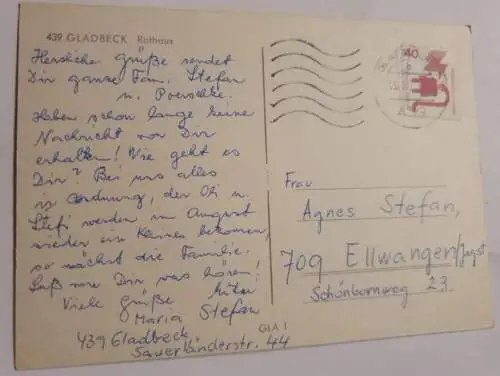 439 GLADBECK Rathaus
Herzliche Grüße sendet
Dir ganze Fam. Stefan
u. Poerschke.
Haben schon lange keine
Nachricht von Dir
erhalten! Wie geht es
Dir? Bei uns alles
in Ordnung, der Oli u.
Stefi werden im August
wieder ein Kleines bekommen,
so wächst die Familie.
Laß mal Dir was hören!
Viele Grüße
Maria Stefan
439 Gladbeck
Sauerländerstr. 44
GLA 1
40
Frau
Agnes Stefan,
709 Ellwangen/Jagst
Schönbornweg 23